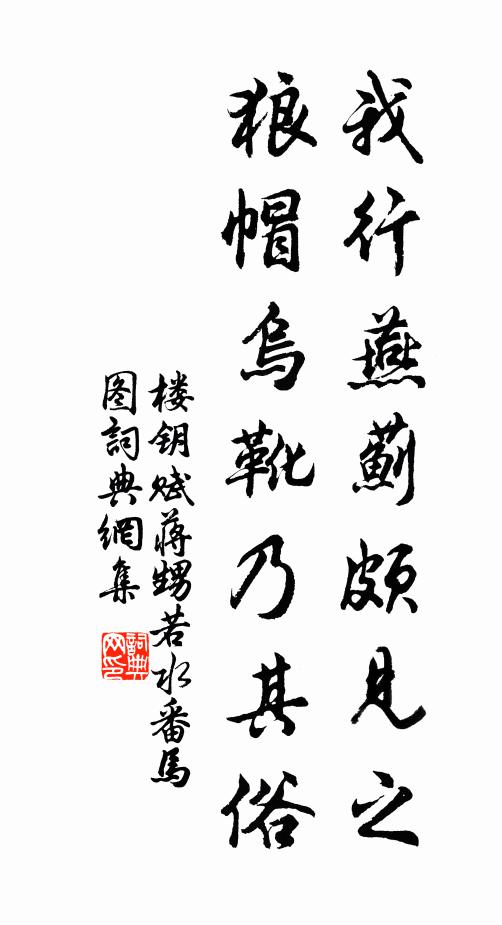 我行燕薊頗見之
狼帽烏靴乃其俗
楼钥赋蒋甥若水番馬
图詞典網集
詞典网印